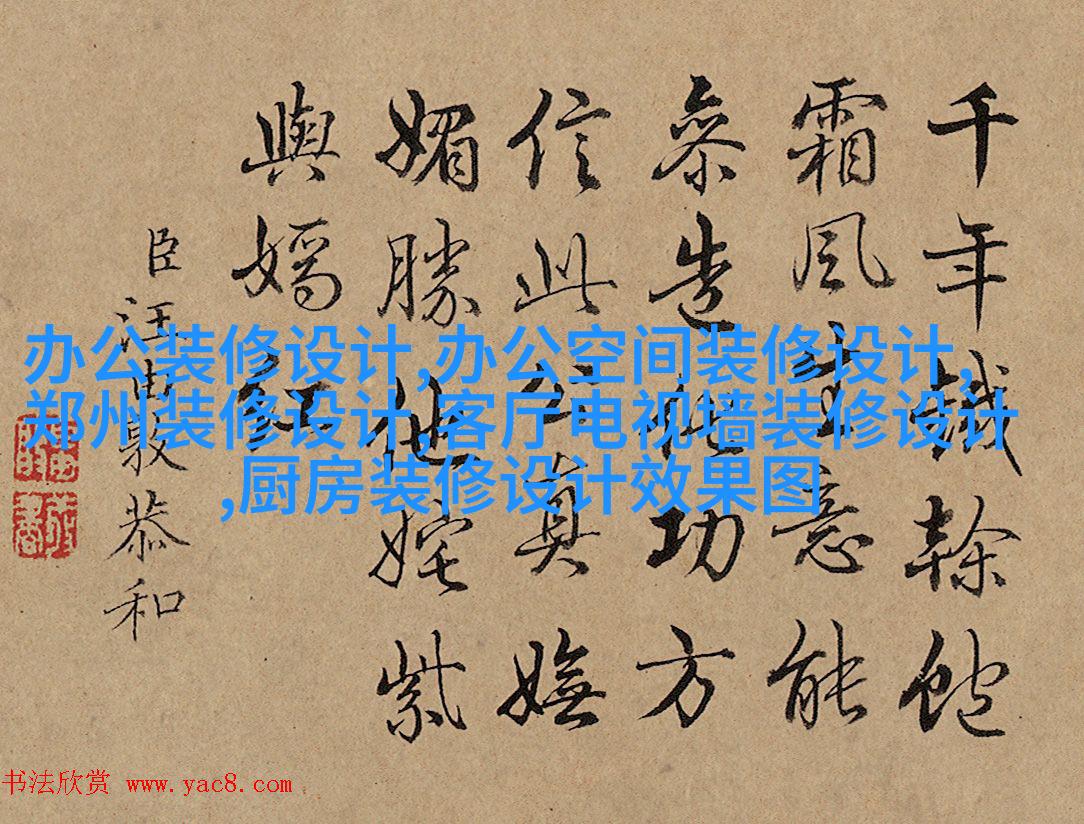 千年鐵榦飽
霜風生意能
參造化功方
信此真嫵
媚勝他姹紫
與嫣紅
臣汪由敦恭和
办公装修设计,办公空间装修设计,
郑州装修设计,客厅电视墙装修设计
,厨房装修设计效果图
书法欣赏 www.yac8.com